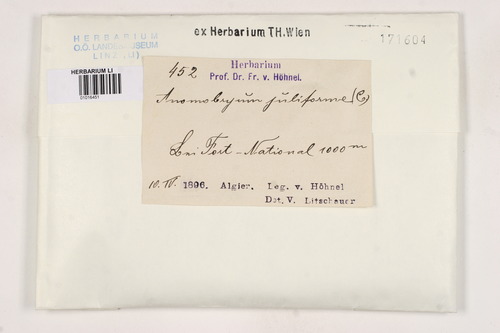 ex Herbarium TH.Wien
HERBARIUM
O.Ö. LANDESMUSEUM
LINZ (LI)
171604
HERBARIUM LI
01016451
452
Herbarium
Prof. Dr. Fr. v. Höhnel.
Anomobryum juliforme
Bei Fort-National 1000 m
10. IV. 1896. Algier. Leg. v. Höhnel
Det. V. Litschauer